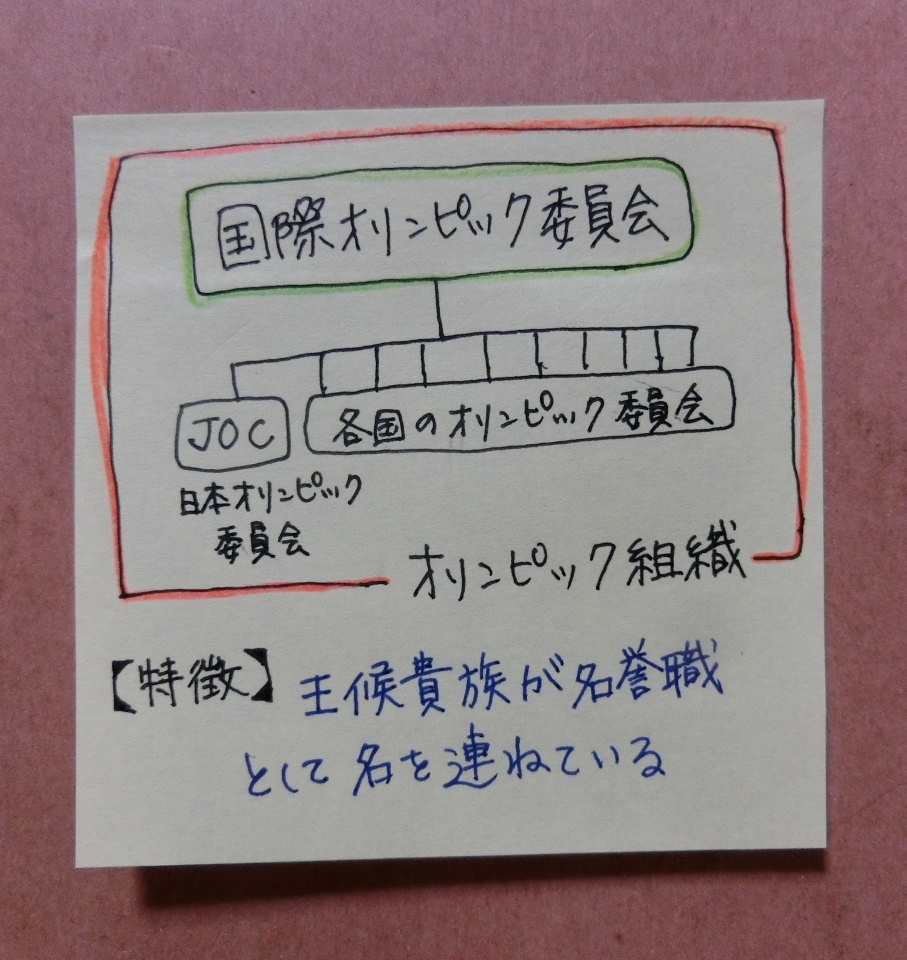 国際オリンピック委員会
JOC
各国のオリンピック委員会
日本オリンピック
委員会
オリンピック組織
【特徴】王候貴族が名誉職
として名を連ねている